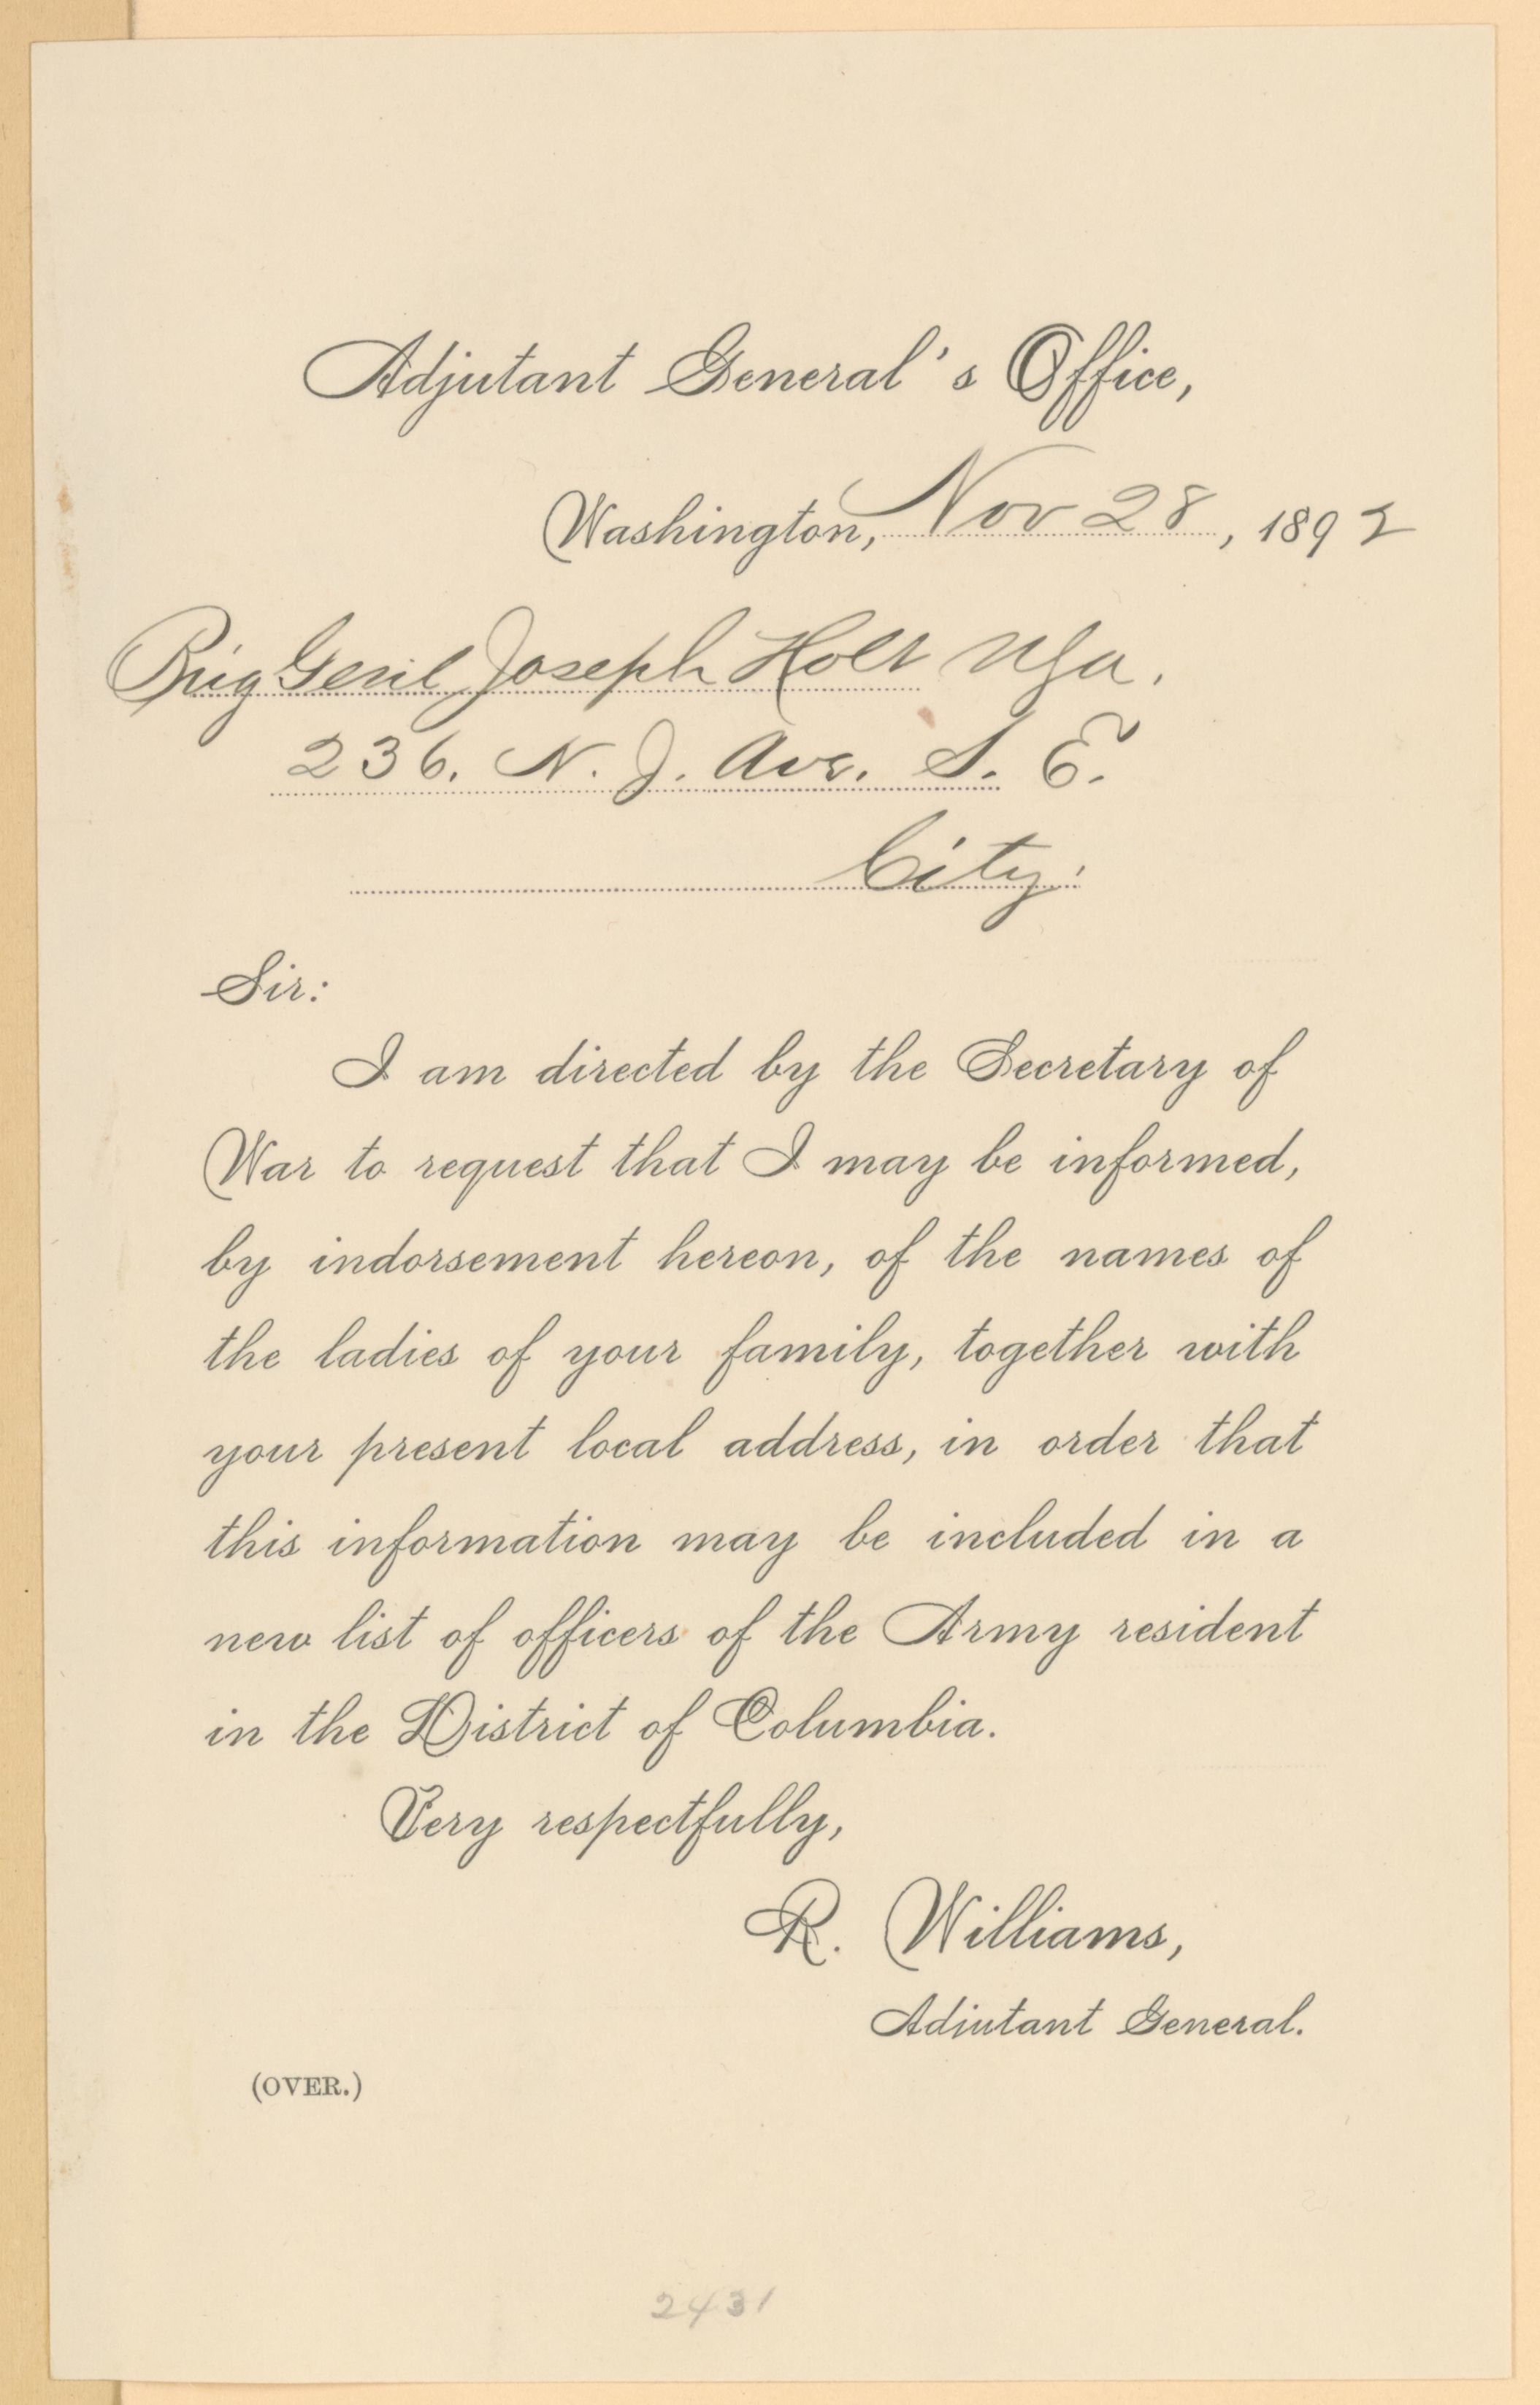 Adjutant General's Office,
Washington, Nov 28, 1892
Brig Genl Joseph Holt USA.
236. N. J. Ave. S. E.
City.
Sir:
I am directed by the Secretary of
War to request that I may be informed,
by indorsement hereon, of the names of
the ladies of your family, together with
your present local address, in order that
this information may be included in a
new list of officers of the Army resident
in the District of Columbia.
Very respectfully,
R. Williams,
Adjutant General.
(OVER.)
2431